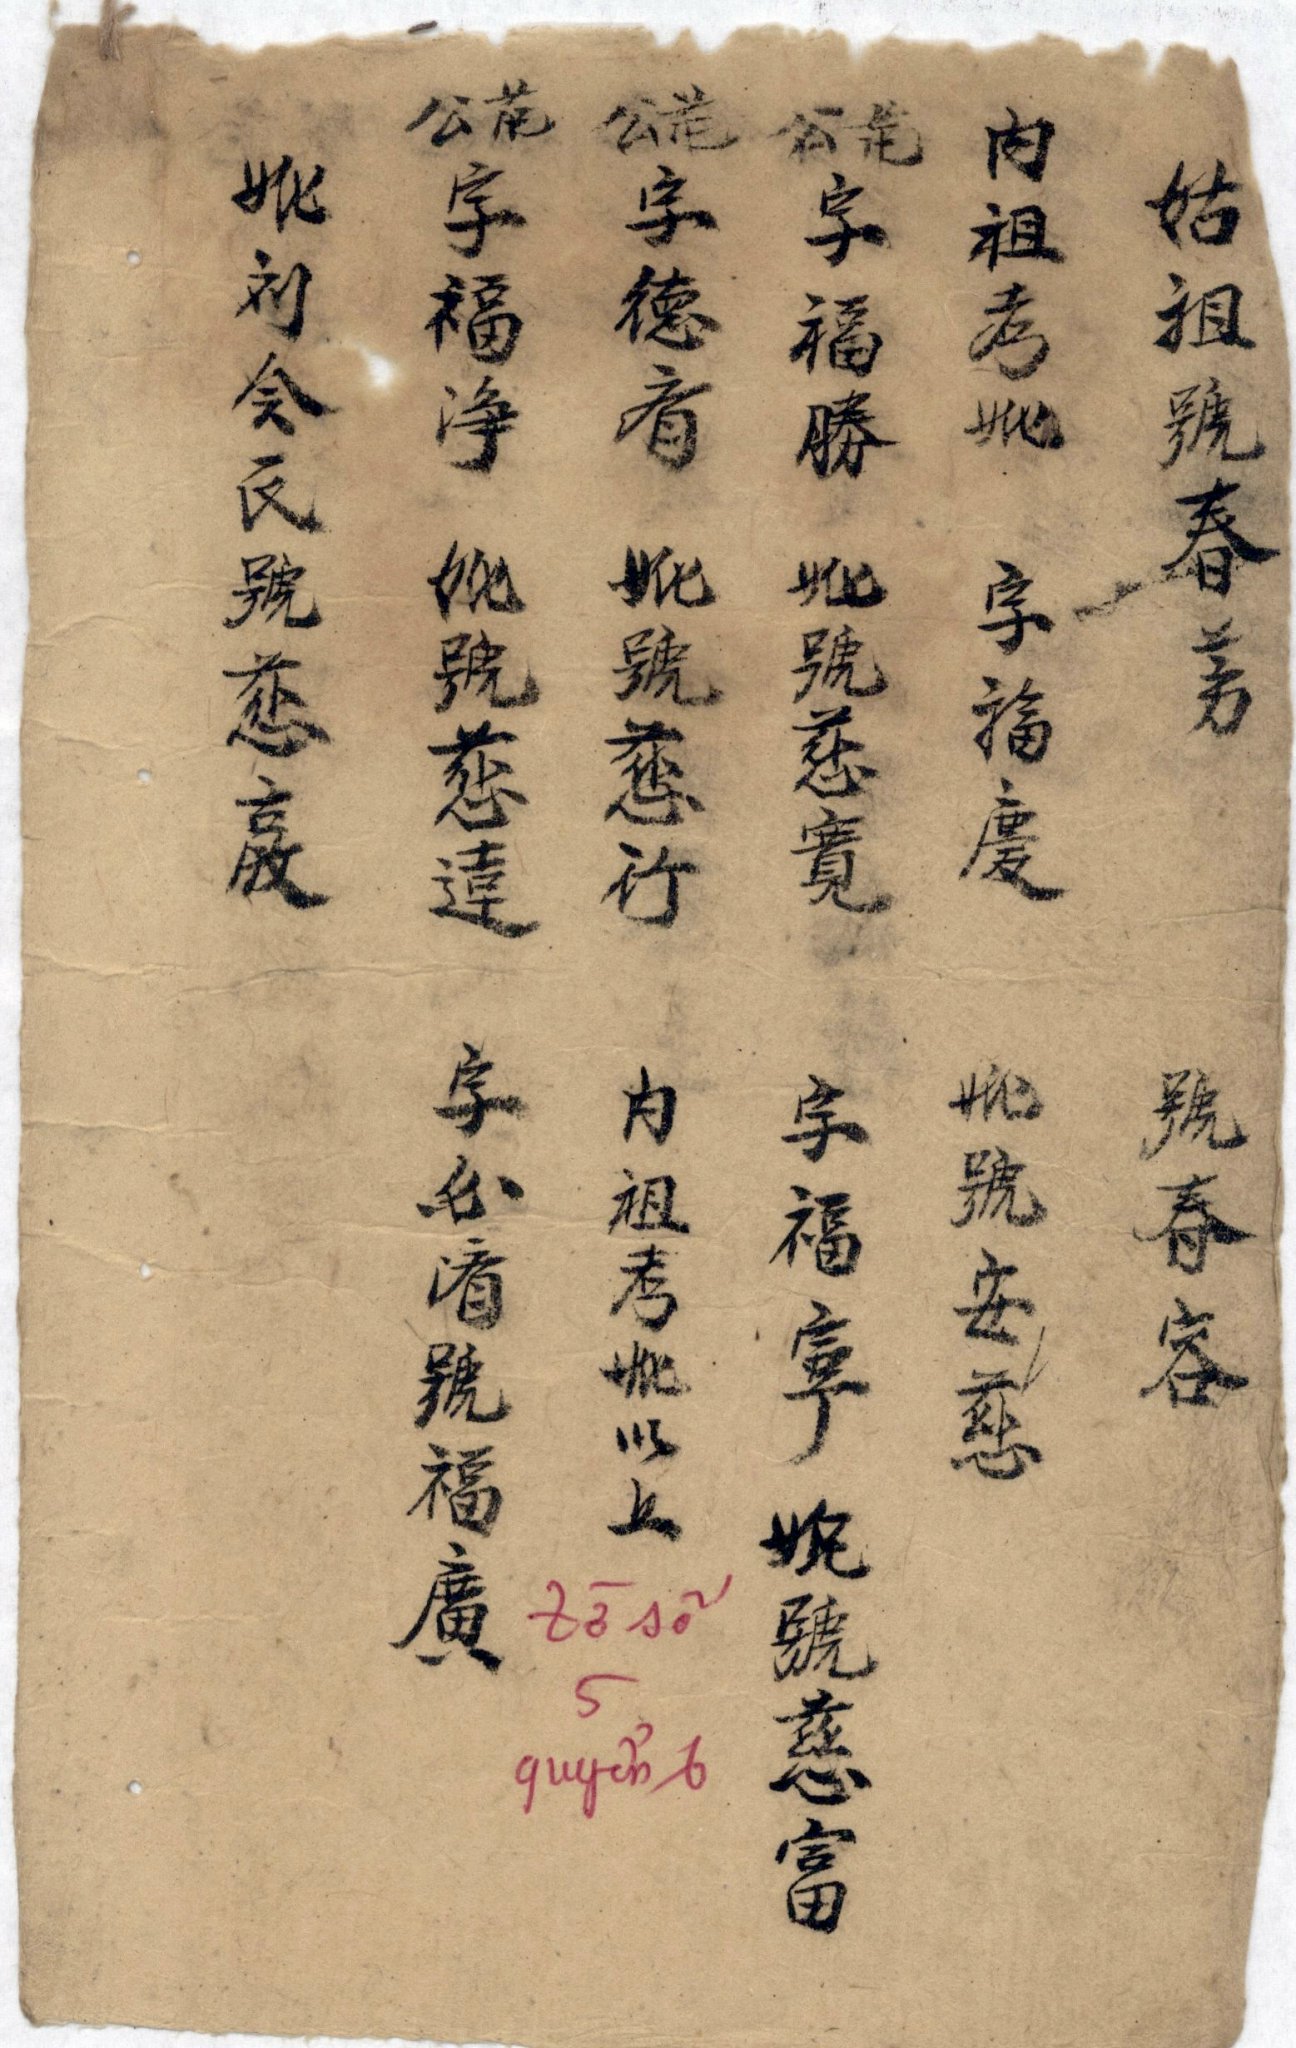 姑祖號春芳 號春容
内祖考妣 字福慶 妣號安慈
公 字福勝 妣號慈寬 字福寧 妣號慈富
公 字德 妣號慈行 内祖考妣以上
tờ số
5
quyển 6
公 字福淨 妣號慈達 字 號福廣
妣刘令氏號慈